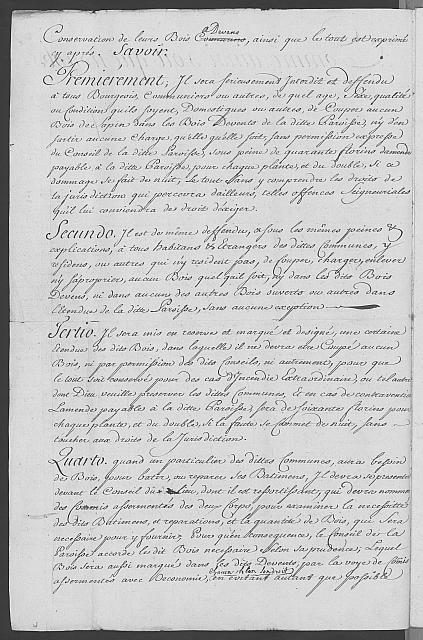 Devens
Conservation de leurs Bois Communs, ainsi que le tout est exprimé
cy après. Savoir
Premierement; Il sera serieusement Interdit et deffendu
à tous Bourgeois, Communiers ou autres, de quel age, sexe, qualité
ou condition qu'ils soyent, Domestiques ou autres, de Couper aucun
Bois de sapin dans les Bois Devents de la ditte Paroisse, ny d'en
sortir aucune charge, qu'elle qu'elle soit, sans permission expresse
du Conseil de la ditte Paroisse, sous peine de quarante florins d'amende
payable à la ditte Paroisse, pour chaque plante, et du double, si ce
dommage se fait de nuit, Le tout sans y comprendre les droits de
la jurisdiction qui percevra d'ailleurs, telles offences Seigneuriales
qu'il luy conviendra de droit d'exiger.
Secundo. Il est de même deffendu, & sous les mêmes peines &
explications, à tous habitans & Etrangers des dittes Communes, y
residens, ou autres qui n'y resident pas, de couper, charger, enlever
n'y s'aproprier, aucun Bois quel qu'il soit, n'y dans les dits Bois
Devens, ni dans aucun des autres Bois ouverts ou autres dans
l'etendue de la ditte Paroisse, sans aucune exeption
Tertio. Il sera mis en reserve et marqué et designé, une certaine
etendue des dits Bois, dans laquelle il ne devra etre Coupé aucun
Bois, ni par permission des dits Conseils, ni autrement, pour que
le tout soit conservé pour des cas d'Incendie Extraordinaire, ou tel autre
dont Dieu veuille preserver les dittes Communes, et en cas de contravention
Lamende payable à la ditte Paroisse, sera de soixante florins pour
chaque plante, et du double, Si la faute se commet de nuit, sans
toucher aux droits de la Jurisdiction.
Quarto. quand un particulier des dittes Communes, aura besoin
de Bois, pour batir, ou reparer ses Batimens, Il devra se presenter
devant le Conseil du Lieu, dont il est ressortissant, qui devra nommer
des Commis assermentés des deux Corps, pour examiner la necessité
des dits Batimens, et reparations, et la quantité de Bois, qui sera
necessaire pour y fournir; Pour qu'en consequence, le Conseil de la
Paroisse accorde le dit Bois necessaire selon sa prudence; Lequel
Bois sera aussi marqué dans les dits Devents, par la voye de
assermentés avec Oeconomie, en evitant autant que possible